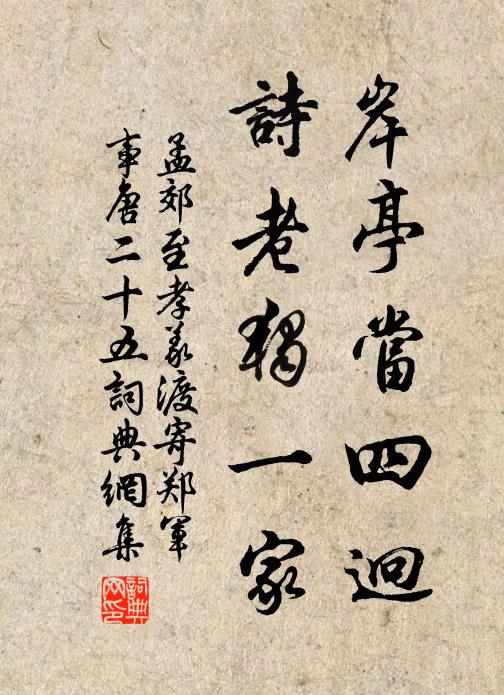 岸亭當四迥
詩老獨一家
孟郊至孝義渡寄郑軍
事唐二十五詞典網集
詞典
网印